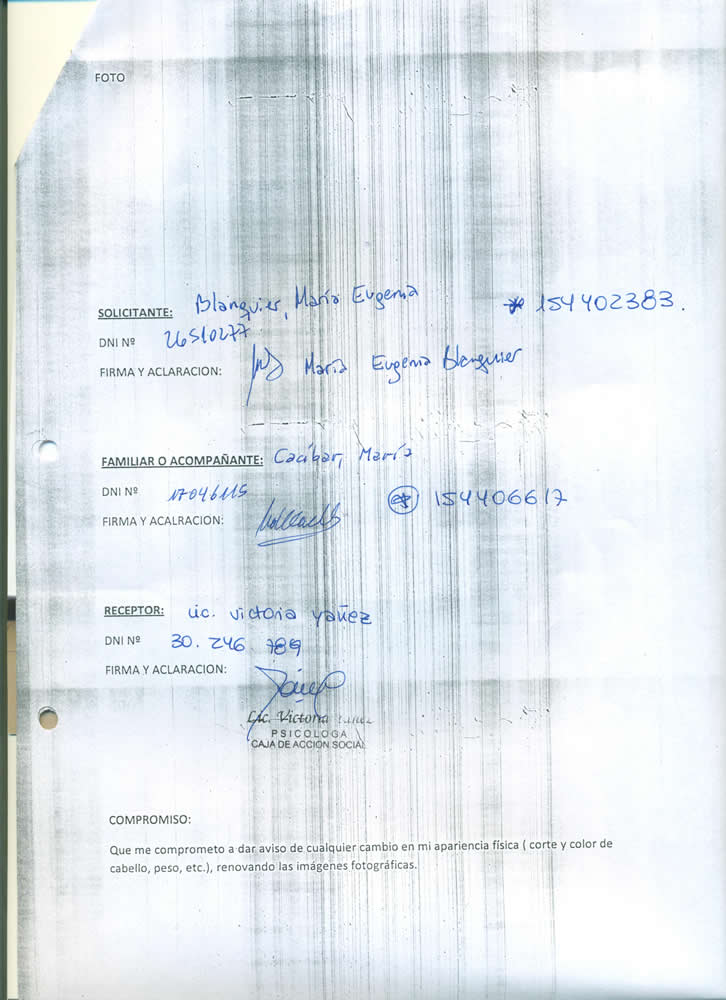 FOTO
SOLICITANTE: Blanquier, María Eugenia * 154402383.
DNI Nº 26510277
FIRMA Y ACLARACION: María Eugenia Blanquier
FAMILIAR O ACOMPAÑANTE: Cacíbar, María
DNI Nº 17046115
FIRMA Y ACALRACION: 154406617
RECEPTOR: Lic. Victoria Yañez
DNI Nº 30.246 789
FIRMA Y ACLARACION:
Lic. Victoria
PSICOLOGA
CAJA DE ACCION SOCIAL
COMPROMISO:
Que me comprometo a dar aviso de cualquier cambio en mi apariencia física ( corte y color de
cabello, peso, etc.), renovando las imágenes fotográficas.